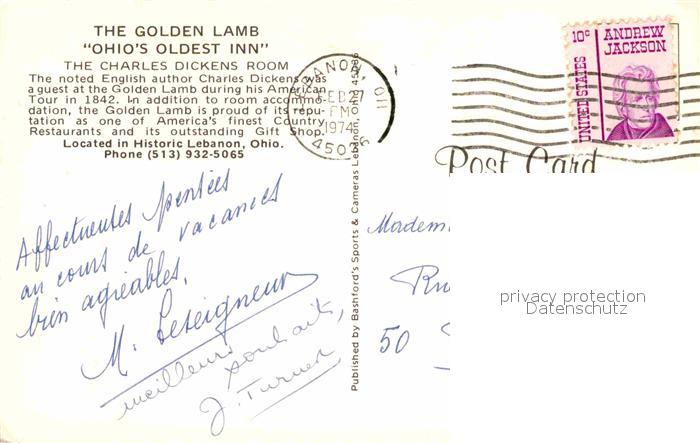 THE GOLDEN LAMB
"OHIO'S OLDEST INN"
THE CHARLES DICKENS ROOM
The noted English author Charles Dickens was
a guest at the Golden Lamb during his American
Tour in 1842. In addition to room accommo-
dation, the Golden Lamb is proud of its repu-
tation as one of America's finest Country
Restaurants and its outstanding Gift Shop.
Located in Historic Lebanon, Ohio.
Phone (513) 932-5065
Affectueuses pensées
au cours de vacances
bien agréables.
M. Leseigneur
meilleurs
souhaits,
J. Turner
Published by Bashford's Sports & Cameras Lebanon, Ohio 45036
LEBANON, OH
FEB 27
PM
1974
45036
10c ANDREW
JACKSON
UNITED STATES
Post Card
Madem
50
privacy protection
Datenschutz